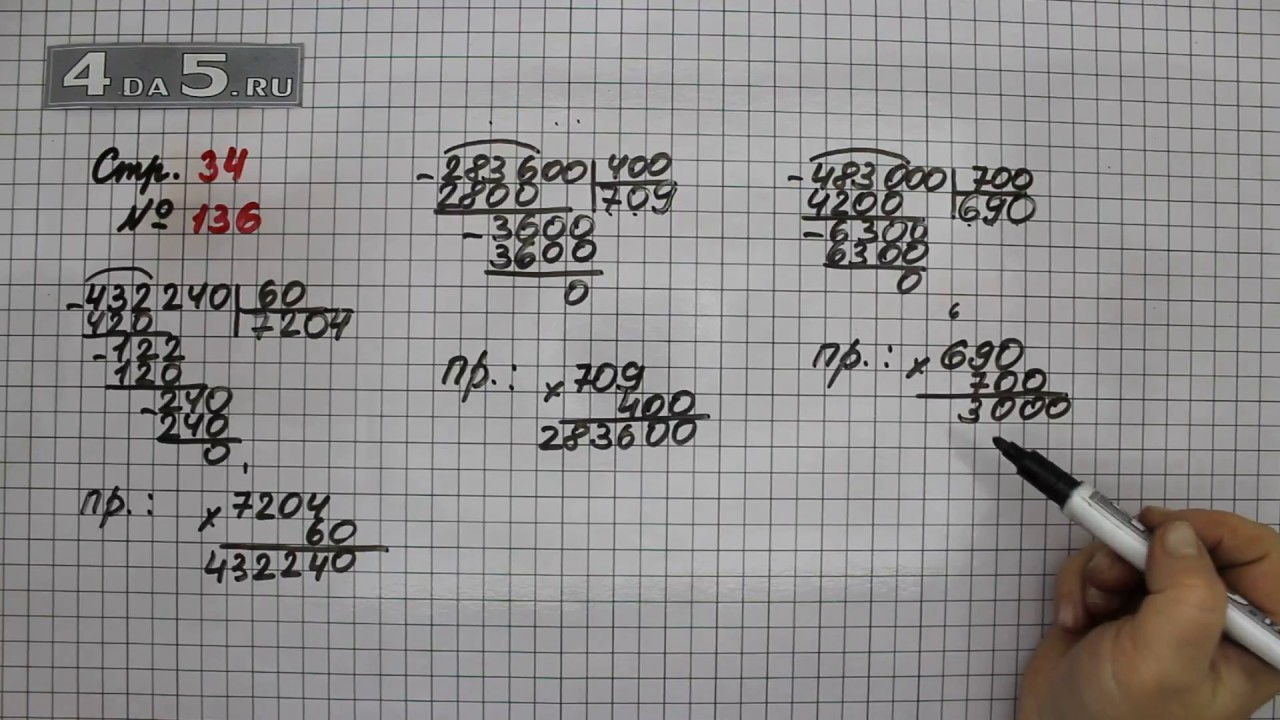 4 DA 5.RU
Стр. 34
№ 136
-432240 60
420 7204
-122
120
-240
240
0
пр.: × 7204
60
432240
-283600 400
2800 709
-3600
3600
0
пр.: × 709
400
283600
-483000 700
4200 690
-6300
6300
0
6
пр.: × 690
700
3000